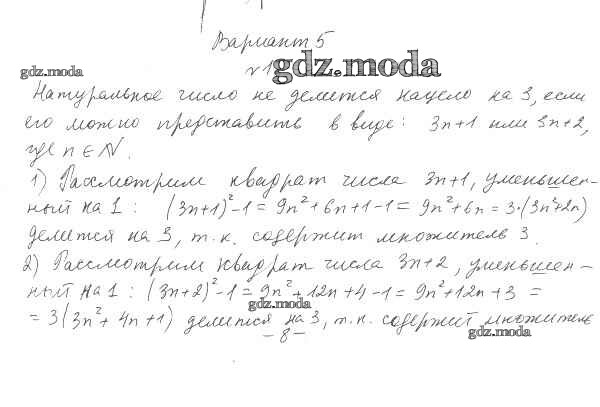 Вариант 5
gdz.moda
№1 gdz.moda
Натуральное число не делится нацело на 3, если
его можно представить в виде: 3n+1 или 3n+2,
где n ∈ N.
1) Рассмотрим квадрат числа 3n+1, уменьшен-
ный на 1: (3n+1)²-1 = 9n²+6n+1-1 = 9n²+6n = 3·(3n²+2n)
делится на 3, т.к. содержит множитель 3.
2) Рассмотрим квадрат числа 3n+2, уменьшен-
ный на 1: (3n+2)²-1 = 9n²+12n+4-1 = 9n²+12n+3 =
gdz.moda
= 3(3n²+4n+1) делится на 3, т.к. содержит множитель
- 8 -
gdz.moda